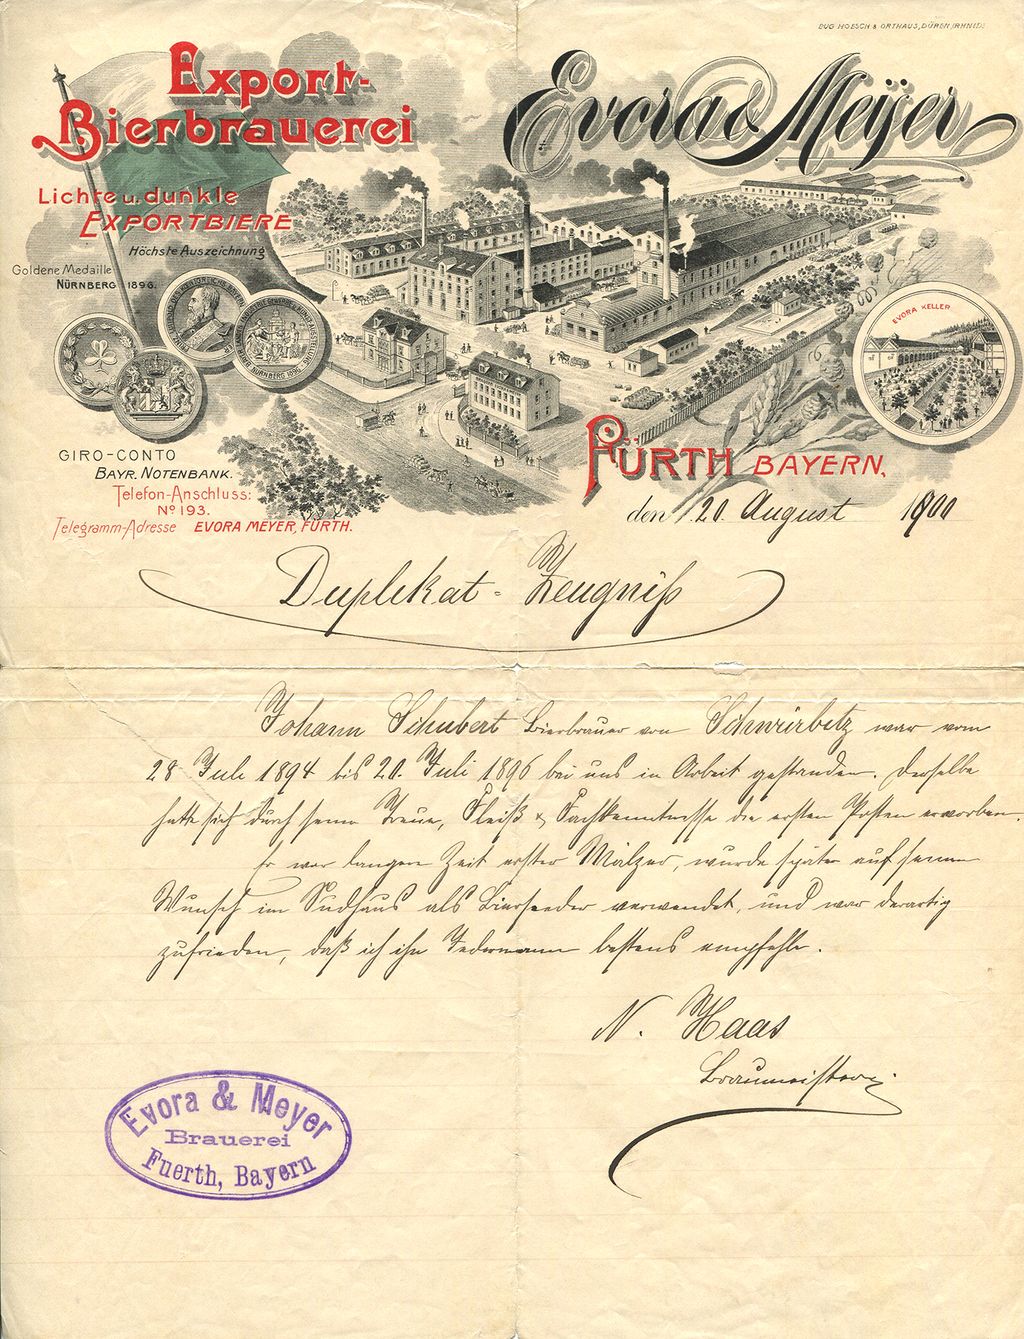 EUG HOESCH & ORTHAUS, DÜREN, RHNLD.
Export-
Bierbrauerei
Evora & Meÿer
Lichte u. dunkle
EXPORTBIERE
Höchste Auszeichnung
Goldene Medaille
NÜRNBERG 1896.
NÜRNBERG 1896
EVORA KELLER
GIRO-CONTO
BAYR. NOTENBANK.
Telefon-Anschluss:
No 193.
Telegramm-Adresse EVORA MEYER, FÜRTH.
FÜRTH BAYERN,
den 20. August 1900
Duplikat-Zeugniß
Johann Schubert Bierbrauer von Schwürbitz war vom
28 Juli 1894 bis 20. Juli 1896 bei uns in Arbeit gestanden. Derselbe
hatte sich durch seine Treue, Fleiß & Fachkenntnisse die ersten Posten erworben.
Er war lange Zeit erster Mälzer, wurde später auf seinen
Wunsch im Sudhaus als Biersieder verwendet, und war derartig
zufrieden, daß ich ihn Jedermann bestens empfehle.
N. Haas
Braumeister.
Evora & Meyer
Brauerei
Fuerth, Bayern